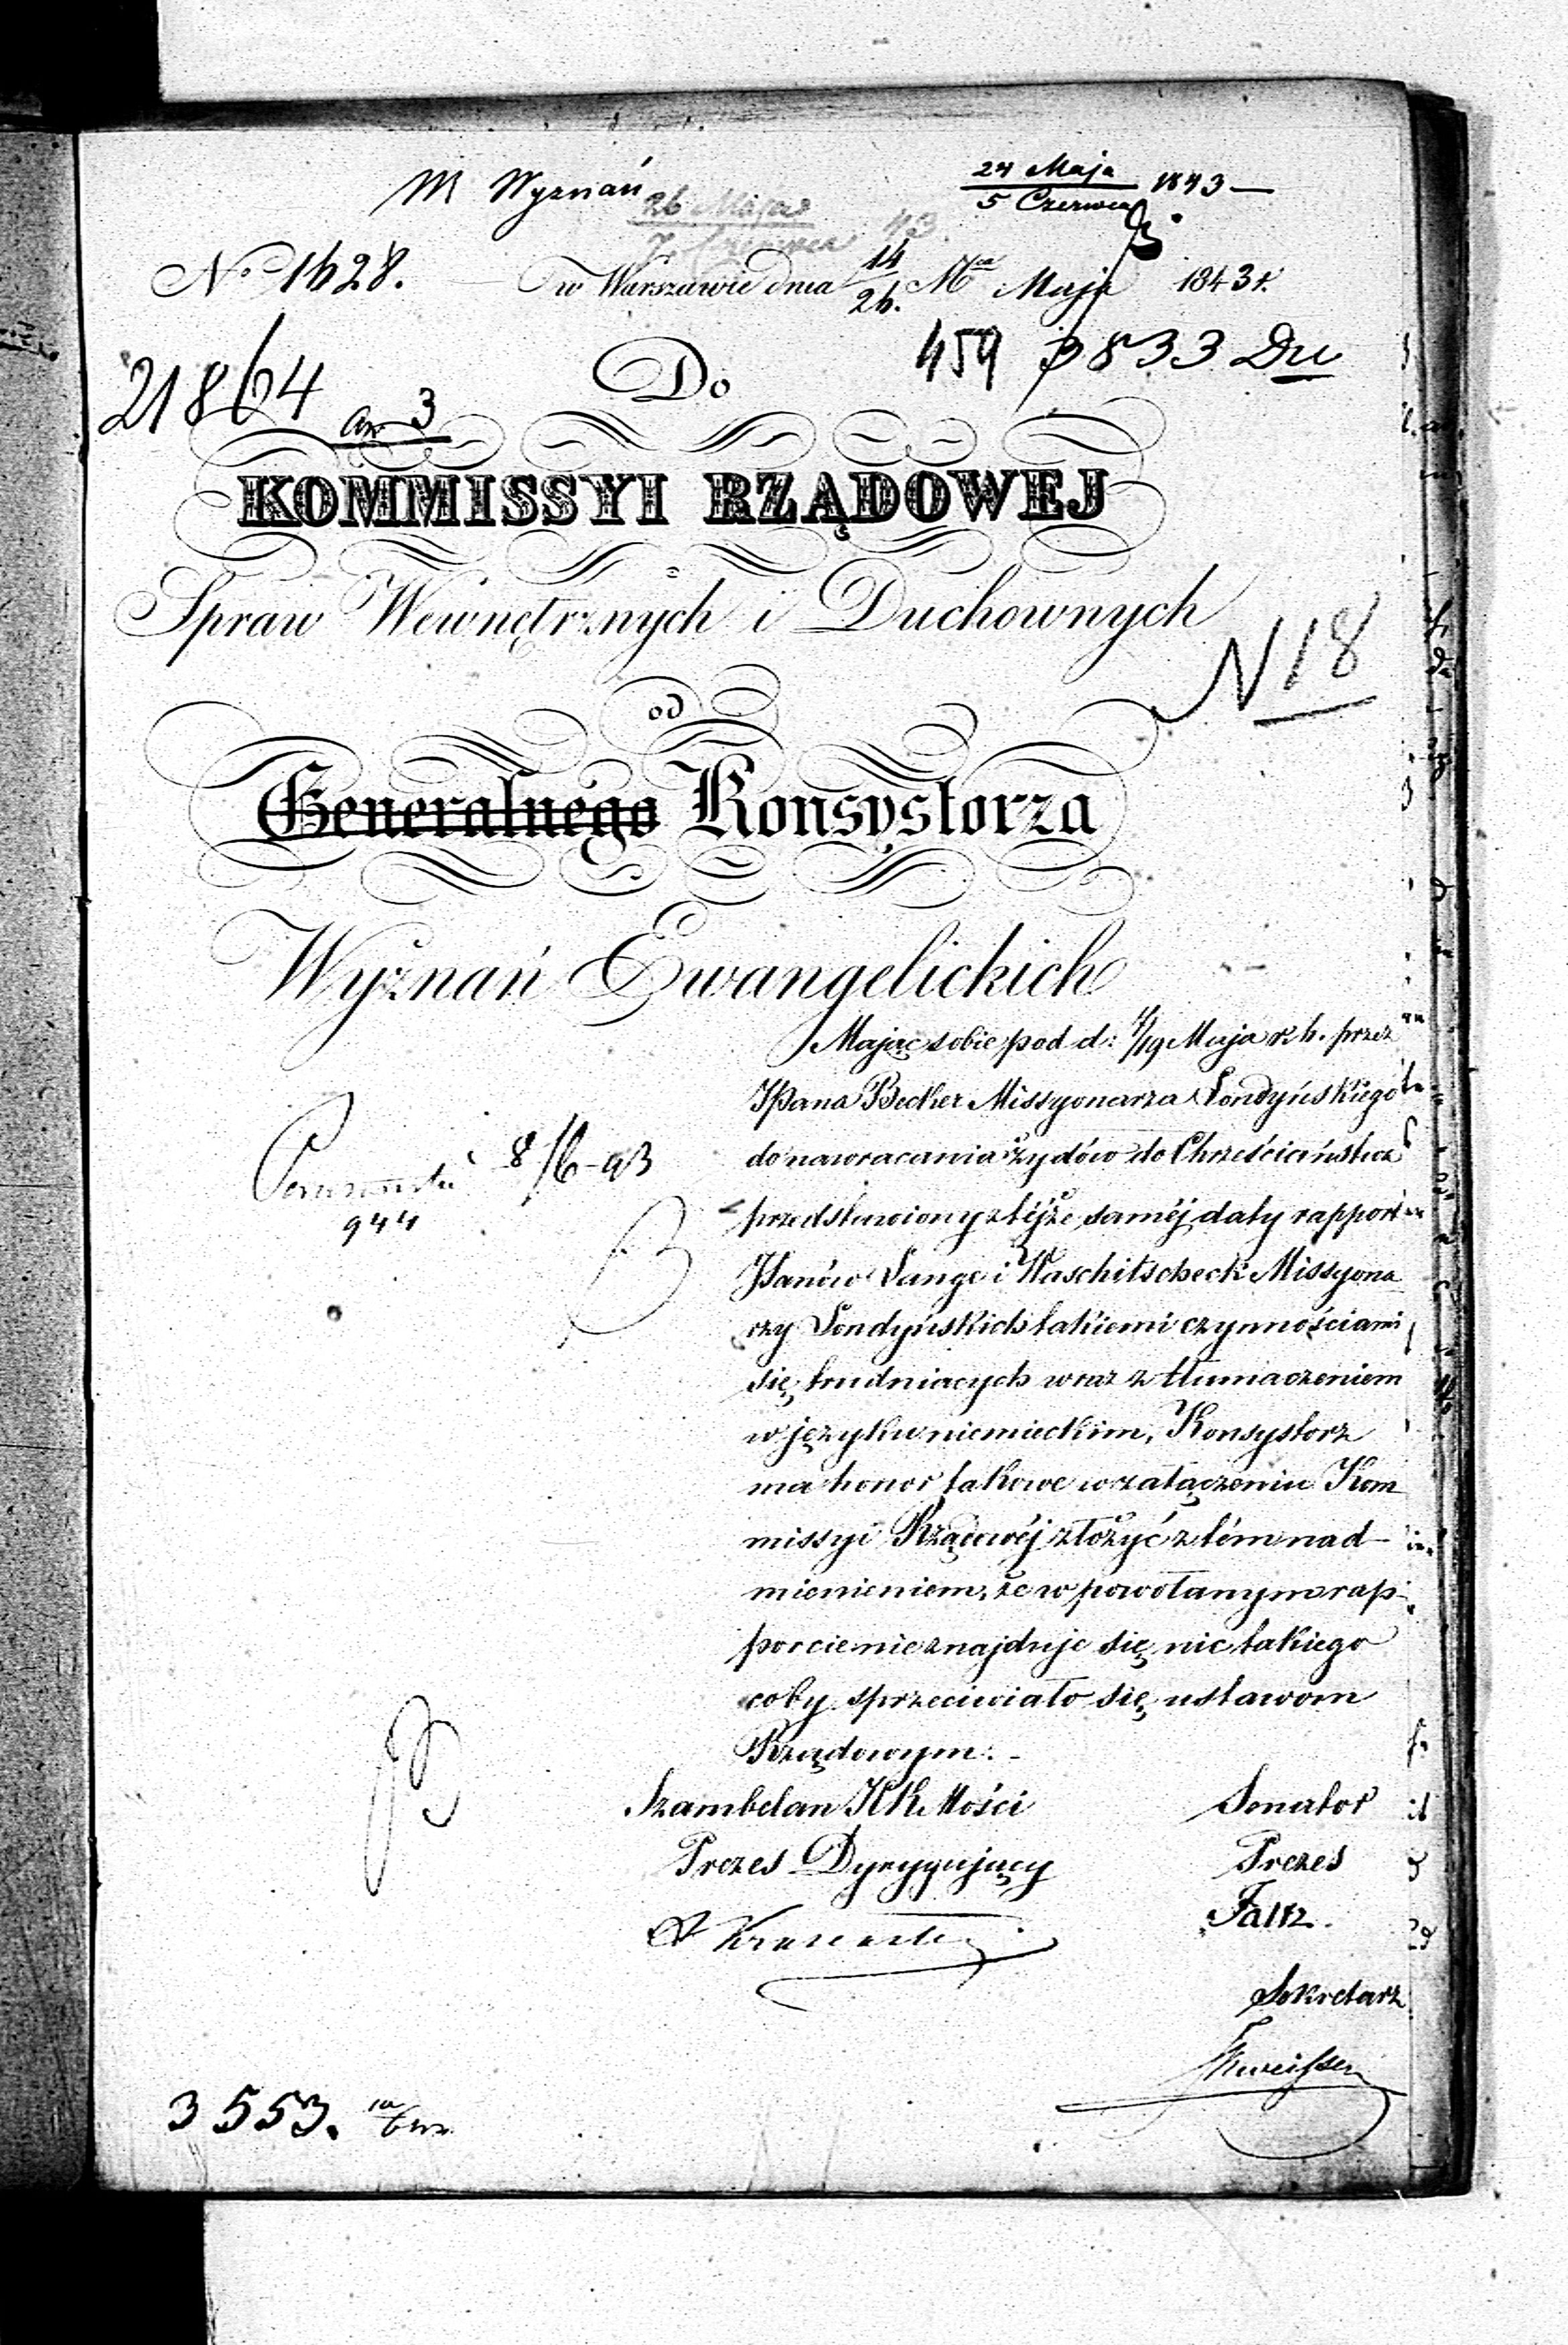 M Wyznań
24 Maja
5 Czerwca 1843
26 Maja
7 Czerwca 43
No 1628.
w Warszawie dnia 14/26. Mca Maja 1843 r.
459 3833 Du
21864
Do
KOMMISSYI RZĄDOWEJ
Spraw Wewnętrznych i Duchownych
N 18
od
Generalnego Konsystorza
Wyznań Ewangelickich
Mając sobie pod d: /19 Maja r b. przez
JPana Becker Missyonarza Londyńskiego
do nawracania żydów do Chrześciaństwa
przedstawiony z téjże saméj daty rapport
JPanów Lange i Waschitscheck Missyona
rzy Londyńskich takiemi czynnościami
się trudniących wraz z tłumaczeniem
w języku niemieckim, Konsystorz
ma honor takowe w załączeniu Kom
missyi Rządowéj złożyć z tém nad-
mienieniem, że w powołanym rap-
porcie nie znajduje się nic takiego
coby sprzeciwiało się ustawom
Rządowym.-
8/6-43
944
Szambelan JKMości
Prezes Dyrygujący
Senator
Prezes
Faltz.
Sekretarz
3553.